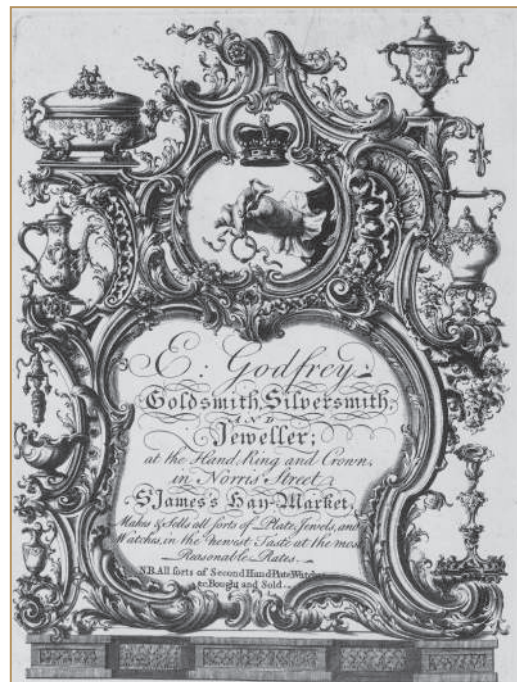 E: Godfrey
Goldsmith, Silversmith,
AND
Jeweller;
at the Hand, Ring and Crown,
in Norris Street
St. James's Hay-Market,
Makes & Sells all sorts of Plate, Jewels, and
Watches, in the newest Taste at the most
Reasonable Rates.
N.B. All sorts of Second Hand Plate
&c. Bought and Sold.